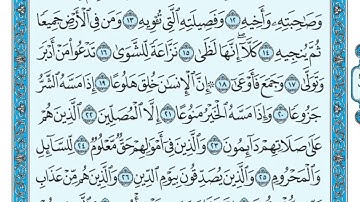 وَصَٰحِبَتِهِۦ وَأَخِيهِ ١٢ وَفَصِيلَتِهِ ٱلَّتِي تُـٔۡوِيهِ ١٣ وَمَن فِي ٱلۡأَرۡضِ جَمِيعٗا
ثُمَّ يُنجِيهِ ١٤ كـَلَّآۖ إِنَّهَا لَظَىٰ ١٥ نَزَّاعَةٗ لِّلشَّوَىٰ ١٦ تَدۡعُواْ مَنۡ أَدۡبَرَ
وَتَوَلَّىٰ ١٧ وَجَمَعَ فَأَوۡعَىٰٓ ١٨ ۞ إِنَّ ٱلۡإِنسَٰنَ خُلِقَ هَلُوعًا ١٩ إِذَا مَسَّهُ ٱلشَّرُّ
جَزُوعٗا ٢٠ وَإِذَا مَسَّهُ ٱلۡخَيۡرُ مَنُوعًا ٢١ إِلَّا ٱلۡمُصَلِّينَ ٢٢ ٱلَّذِينَ هُمۡ
عَلَىٰ صَلَاتِهِمۡ دَآئِمُونَ ٢٣ وَٱلَّذِينَ فِيٓ أَمۡوَٰلِهِمۡ حَقّٞ مَّعۡلُومٞ ٢٤ لِّلسَّآئِلِ
وَٱلۡمَحۡرُومِ ٢٥ وَٱلَّذِينَ يُصَدِّقُونَ بِيَوۡمِ ٱلدِّينِ ٢٦ وَٱلَّذِينَ هُم مِّنۡ عَذَابِ